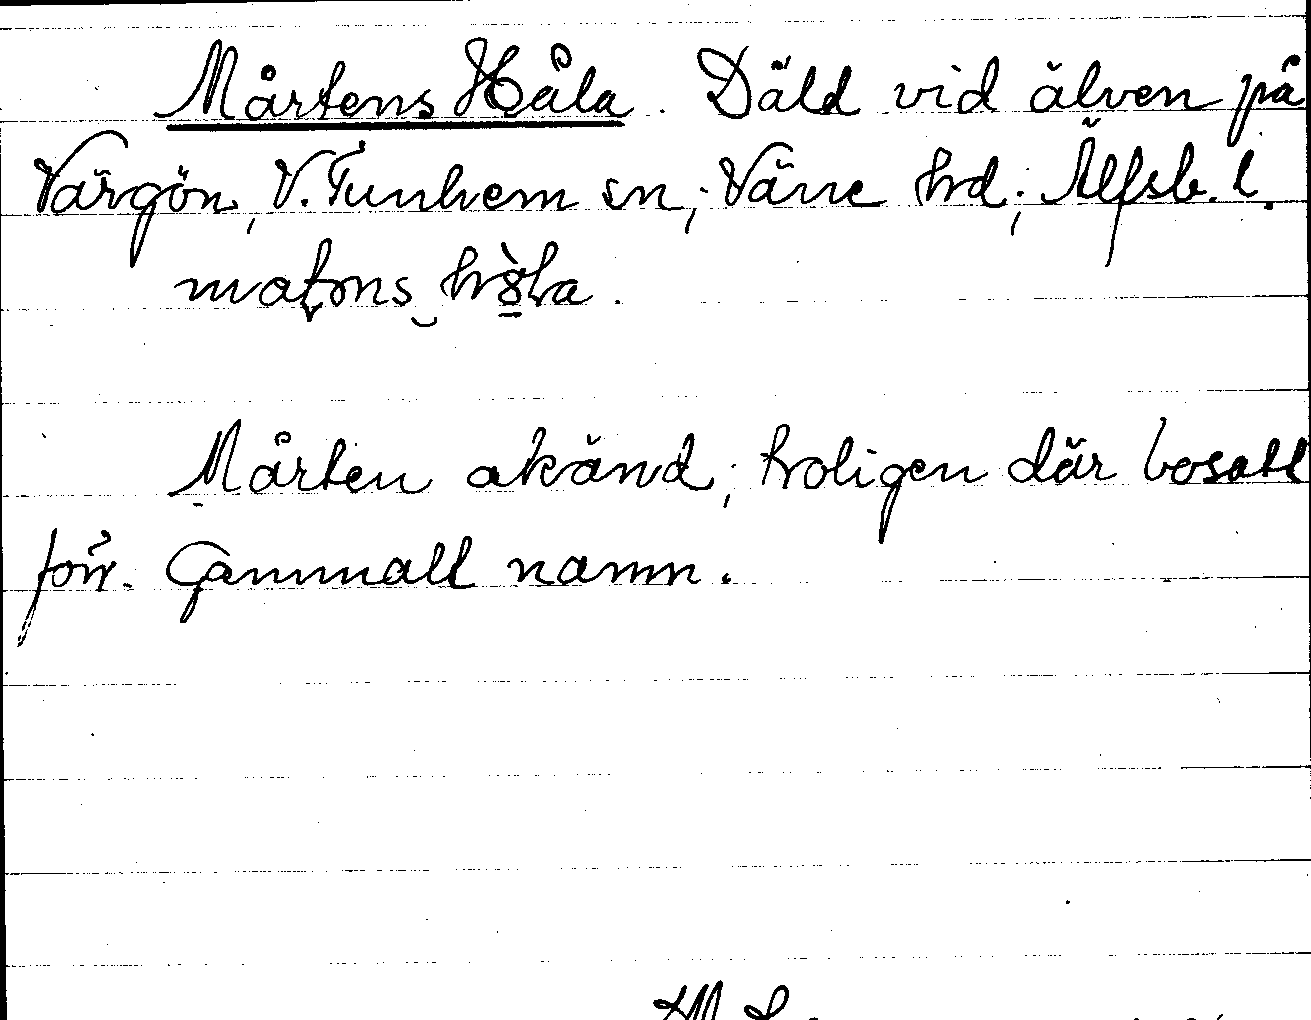 Mårtens Håla. Däld vid älven på
Vargön, V. Tunhem sn; Väne hd; Älfsb. l.
Mårten okänd; troligen där bosatt
förr. Gammalt namn.